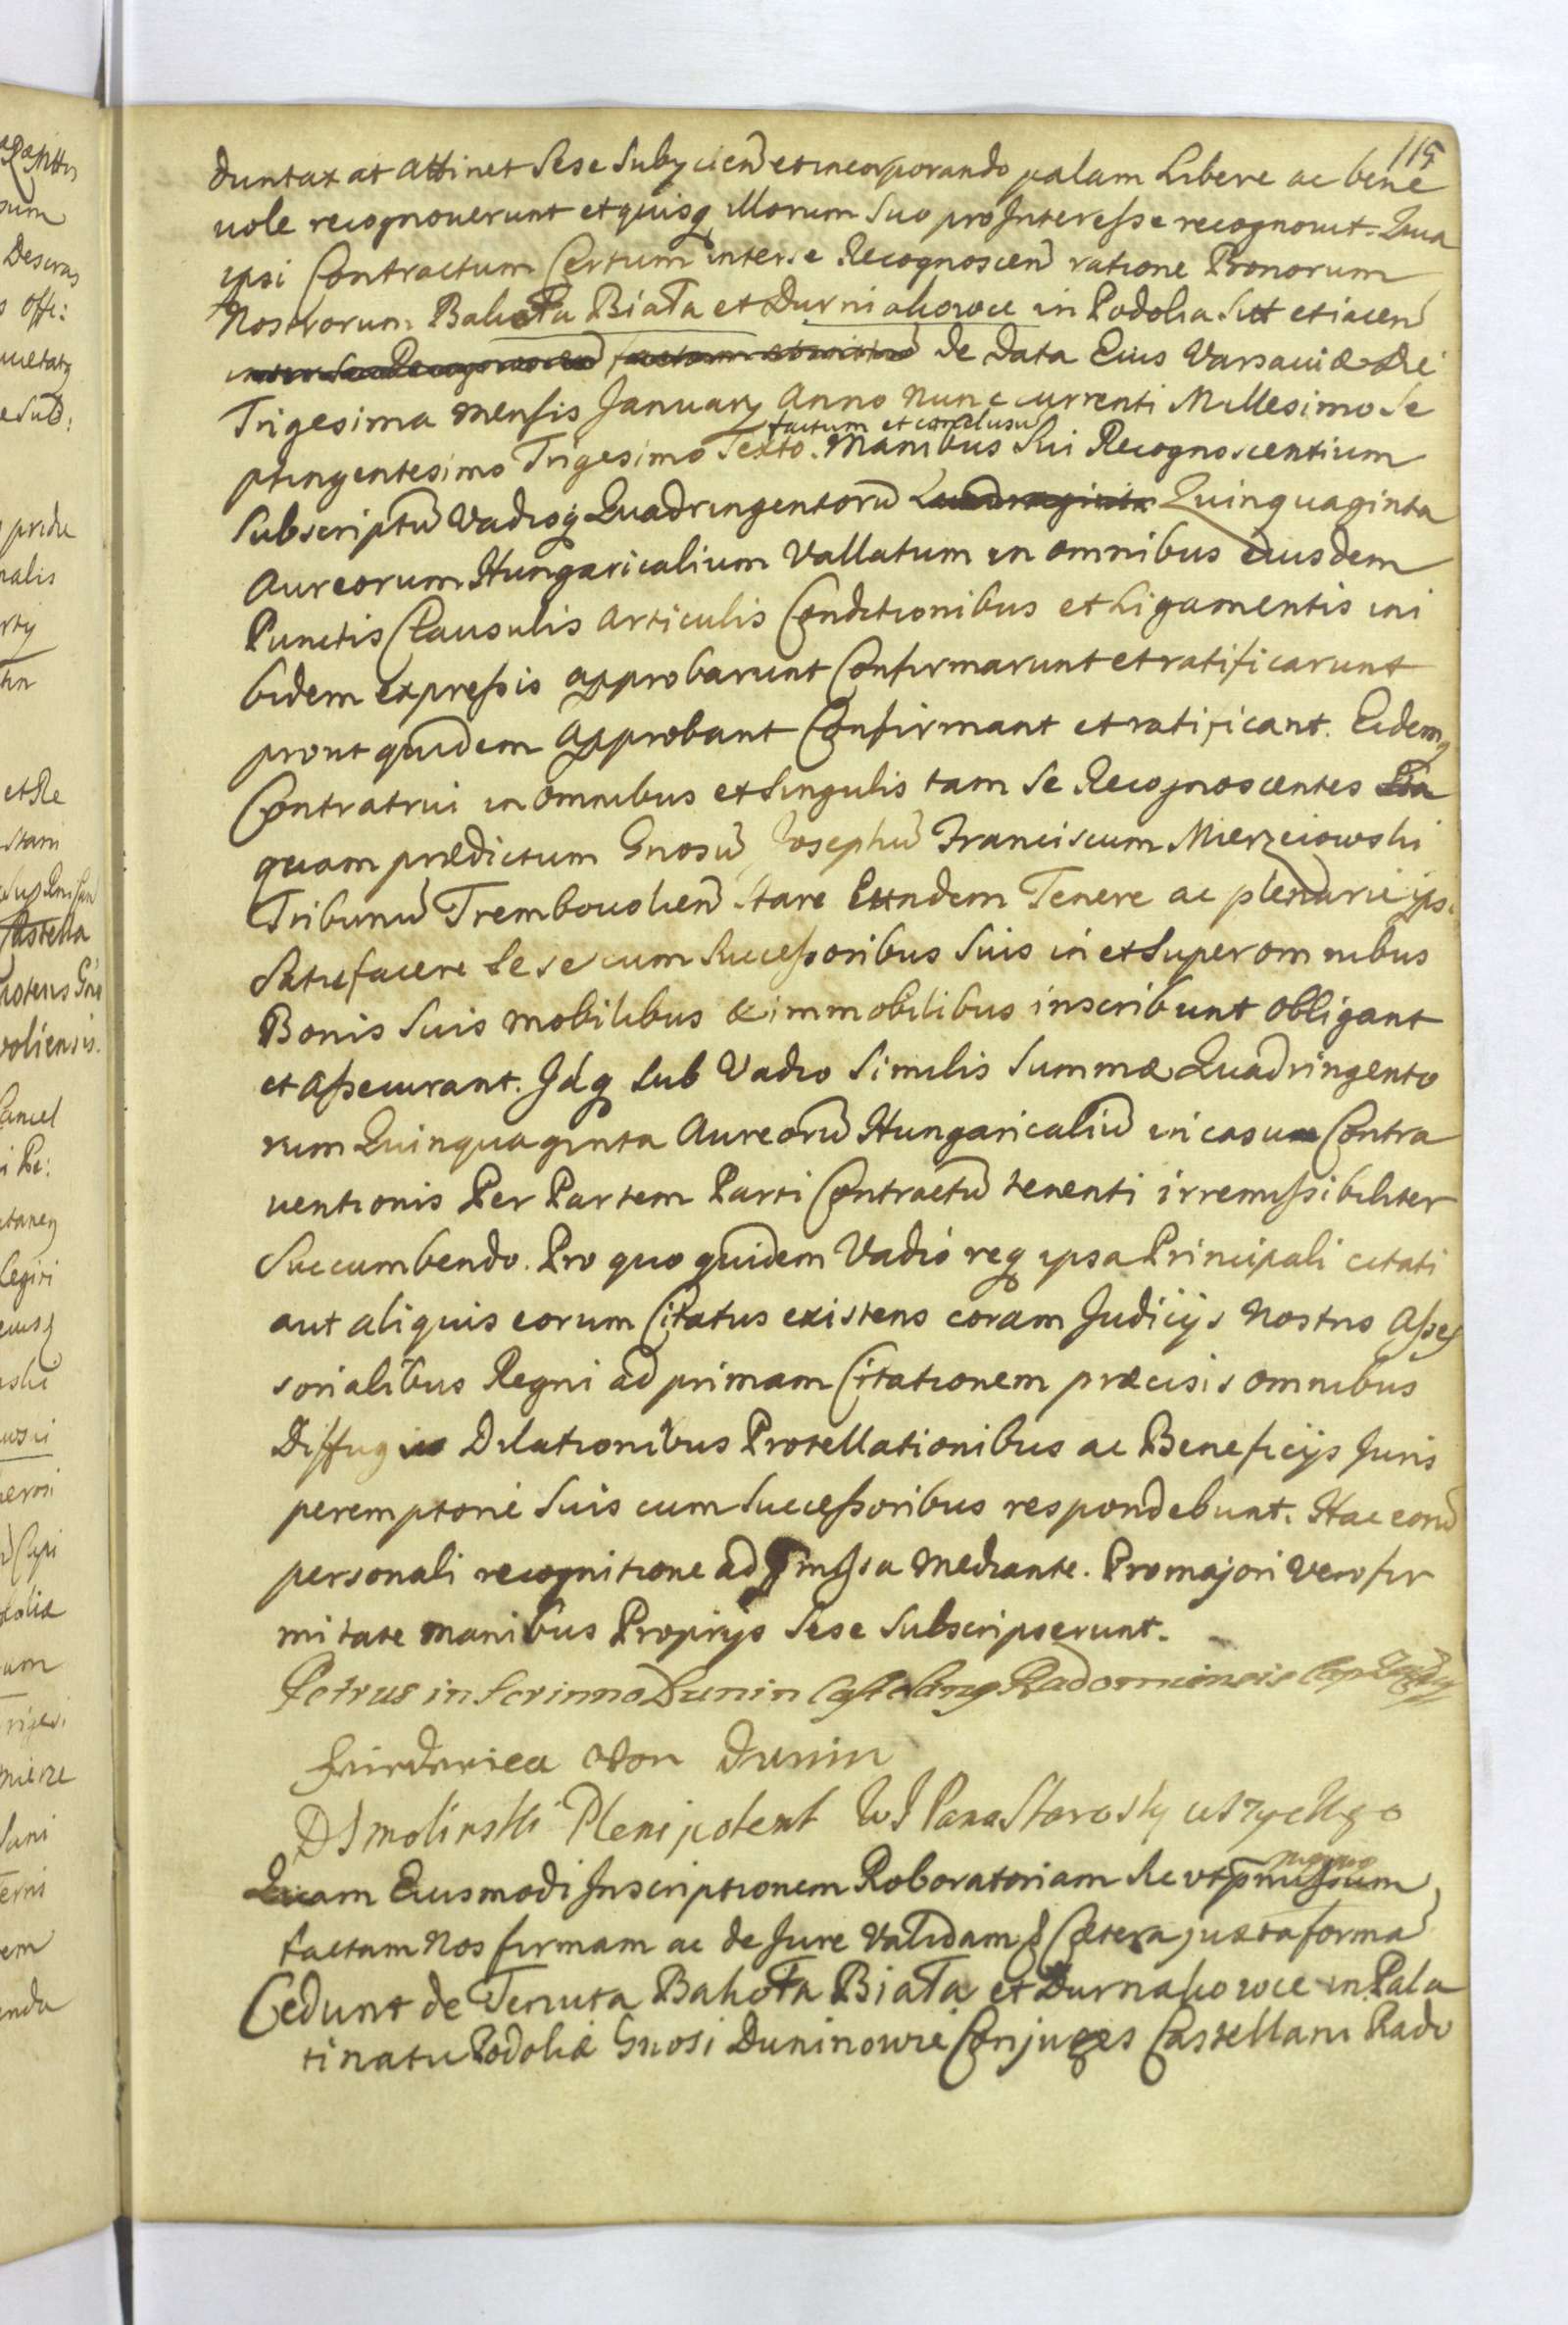 115
duntaxat attinet Sese Subycien̄ et incorporando palam Libere ac bene
uole recognouerunt et quisq illorum Suo pro Interesse recognouit. Quia
ipsi Contractum Certum inter se Recognoscen̄ ratione Bonorum
Nostrorum Bakota Biała et Durniakowce in Podolia Sitt et iacen̄
de data Eius Varsauiæ die
Trigesima mensis January Anno Nunc currenti Millesimo Se
factum et conclusū
ptingentesimo Trigesimo Sexto. Manibus Sui Recognoscentium
Subscriptū Vadioq Quadringentorū Quinquaginta
Aureorum Hungaricalium Vallatum in omnibus eiusdem
Punctis Clausulis Articulis Conditionibus et Ligamentis ini
bidem expressis approbarunt Confirmarunt et ratificarunt
prout quidem Approbant Confirmant et ratificant. Eidemq
Contractui in Omnibus et Singulis tam Se Recognoscentes
quam prædictum Gnosū Josephū Franciscum Mierzeiowski
Tribunū Trembowlien̄ Stare Eundem Tenere ac plenarie ipsi
Satisfacere Sese cum Successoribus Suis in et Super omnibus
Bonis Suis mobilibus & immobilibus inscribunt obligant
et assecurant. Idq Sub Vadio Similis Summæ Quadringento
rum Quinquaginta Aureorū Hungaricaliū in casu Contra
uentionis Per Partem Parti Contractū tenenti irremissibiliter
Succumbendo. Pro quo quidem Vadio req ipsa Principali citati
aut aliquis eorum Citatus existens coram Judicijs Nostris Asses
sorialibus Regni ad primam Citationem præcisis omnibus
Diffugijs Dilationibus Protellationibus ac Beneficijs Juris
peremptorie Suis cum Successoribus respondebunt. Hac eorū
personali recognitione ad mediante. Pro majori Vero fir
mitate manibus Proprijs Sese Subscripserunt.
Petrus in Scrinno Dunin Castelang Radomiensis
Friederica von Dunin
DSmolinski Plenipotent WJ Pana Starosty uszyckgo
Quam Eiusmodi Inscriptionem Roboratoriam Se vt
factam Nos firmam ac de Jure Validam & Cætera juxta formā
Cedunt de Tenuta Bakota Biała et Durnakowce in Pala
tinatu Podoliæ Gnosi Duninowie Conjuges Castellani Rado